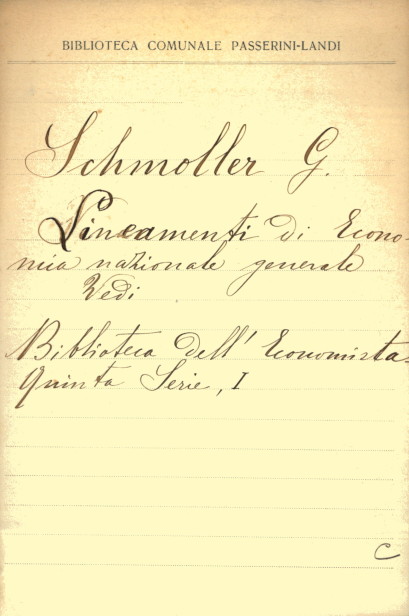 BIBLIOTECA COMUNALE PASSERINI-LANDI
Schmoller G.
Lineamenti di Econo-
mia nazionale generale
Vedi
Biblioteca dell' Economista
Quinta Serie, I
C